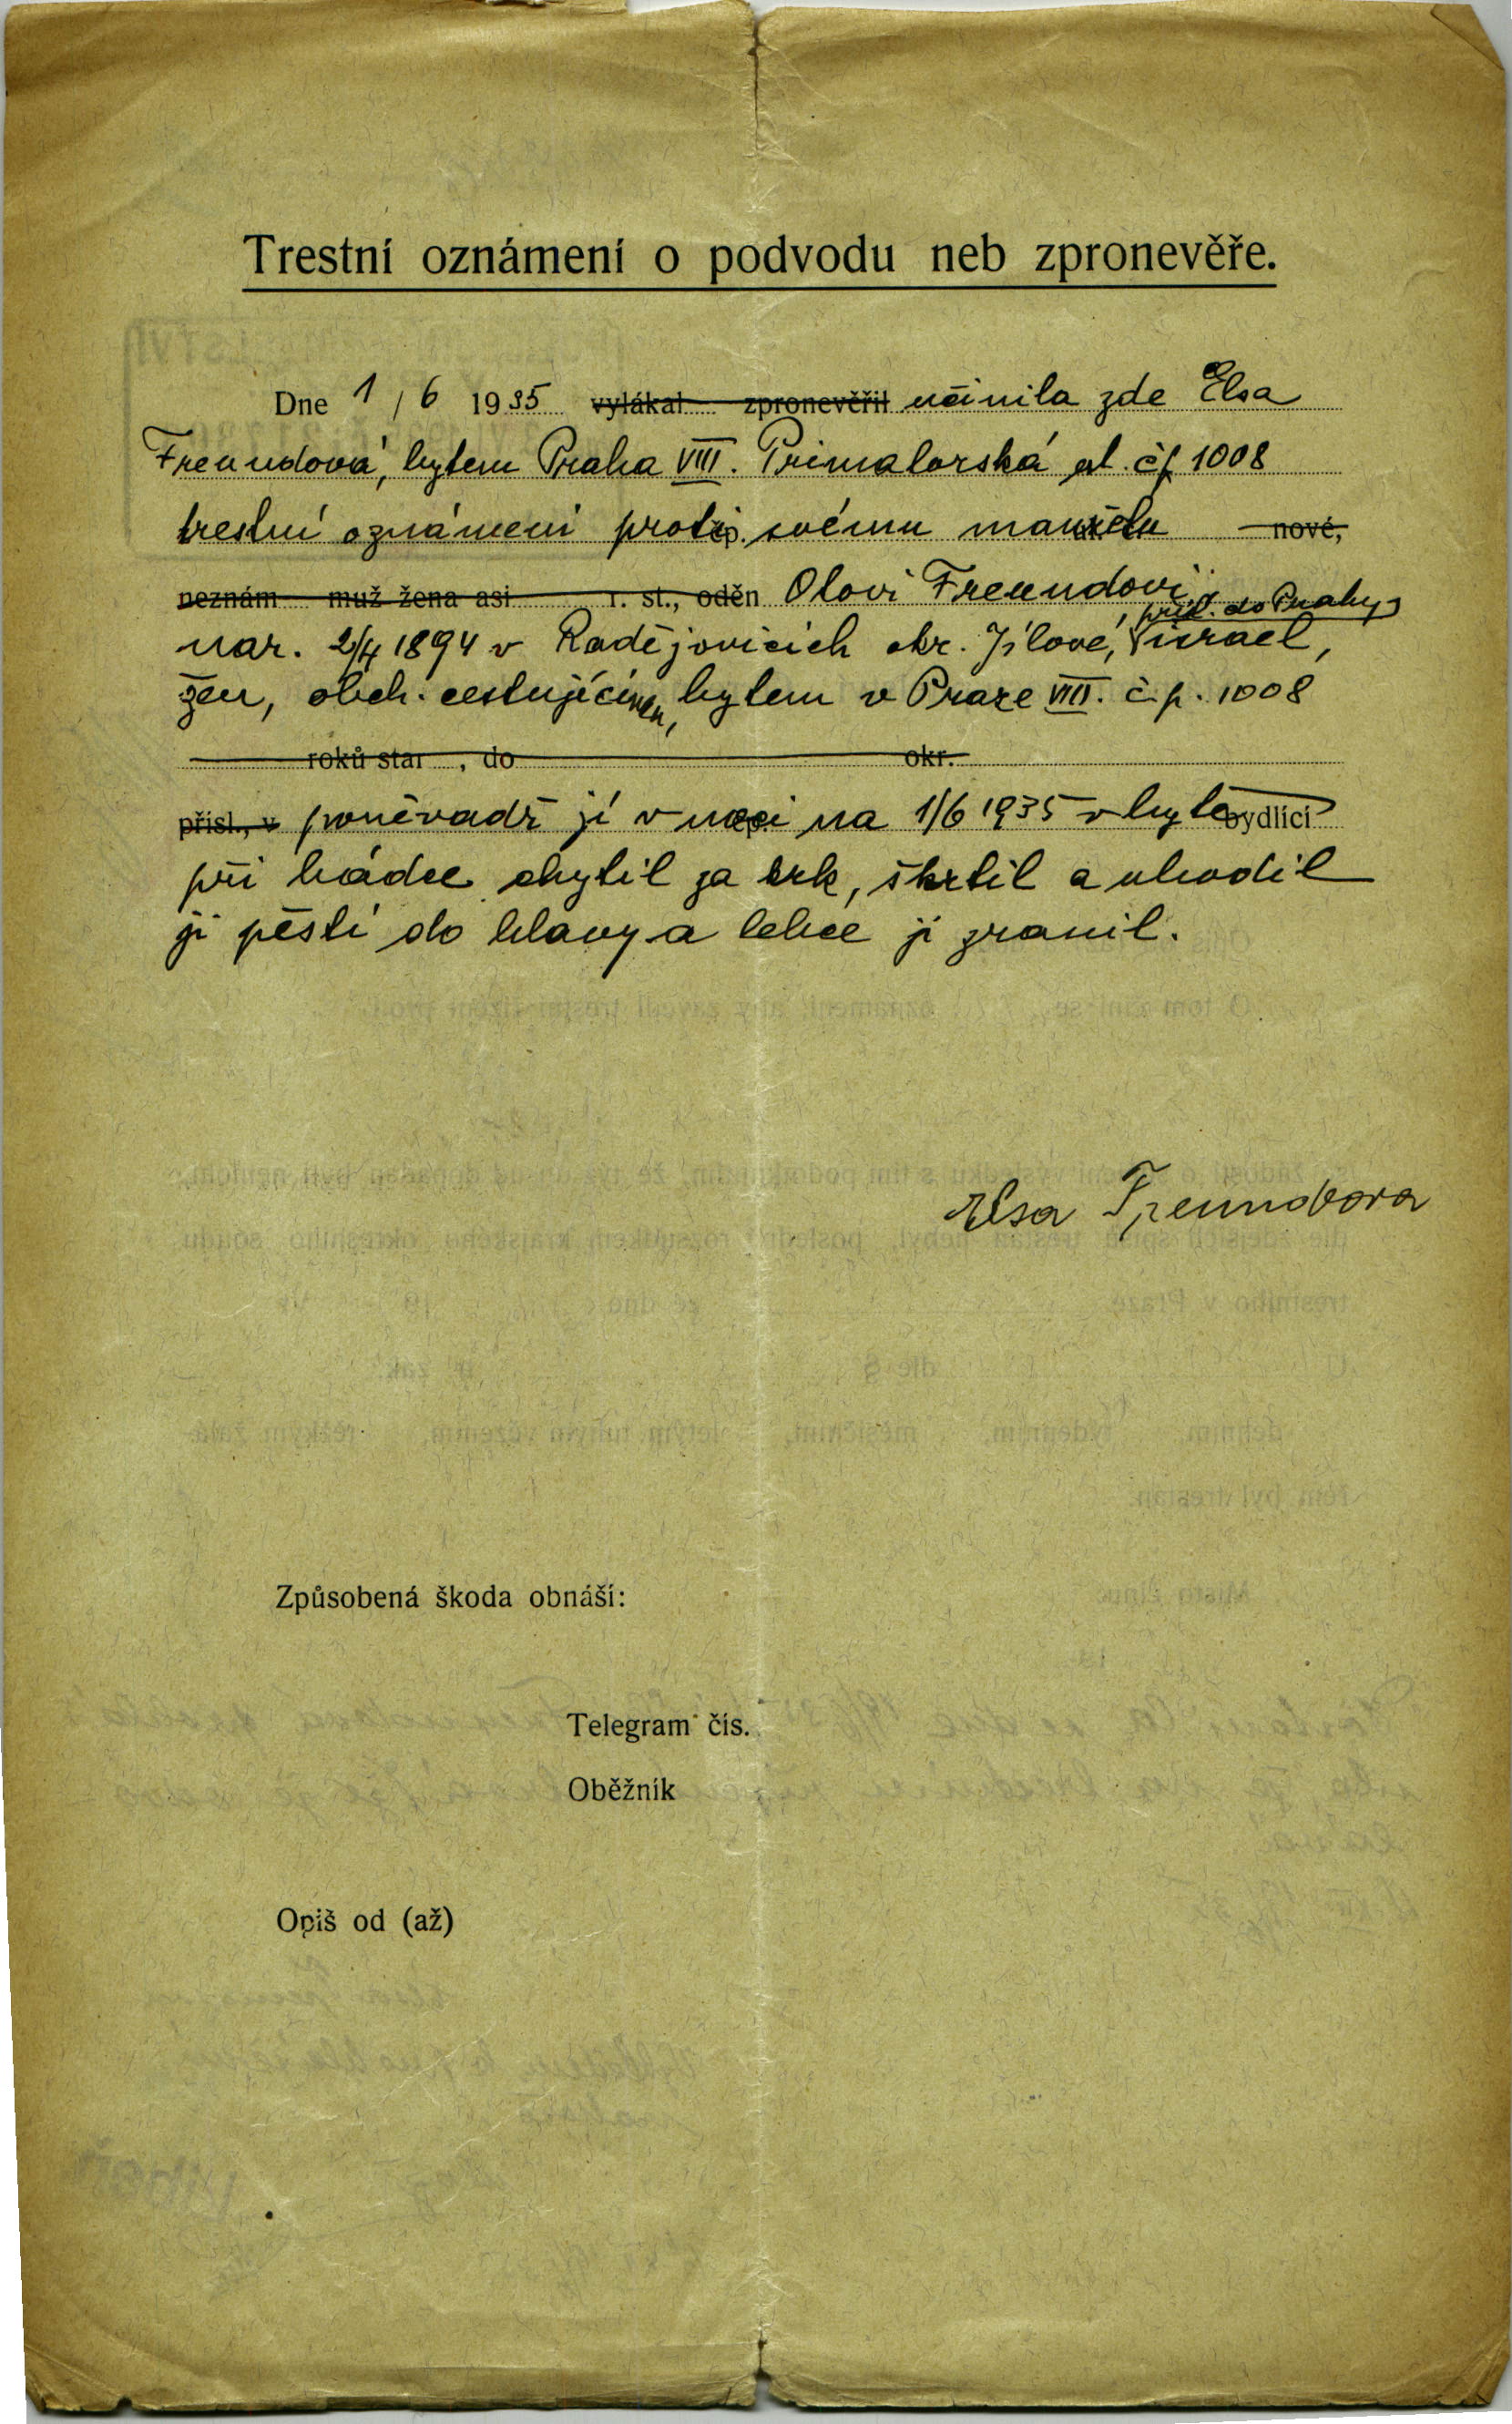 Trestní oznámení o podvodu neb zpronevěře.
Dne 1/6 1935 vylákal zpronevěřil učinila zde Elsa
Freundová, bytem Praha VIII. Primatorská ul. čp 1008
trestní oznámení proti čp. svému manželu nové,
neznám muž žena asi r. st., oděn Otovi Freundovi,
přísl. do Prahy
nar. 2/4 1894 v Radějovicích okr. Jílové, israel,
žen, obch. cestujícímu, bytem v Praze VIII. č.p. 1008
roků star , do okr.
přísl., v poněvadž jí v noci čp. na 1/6 1935 v bytě bydlící
při hádce chytil za krk, škrtil a uhodil
ji pěstí do hlavy a lehce ji zranil.
Elsa Freundova
Způsobená škoda obnáší:
Telegram čís.
Oběžník
Opiš od (až)